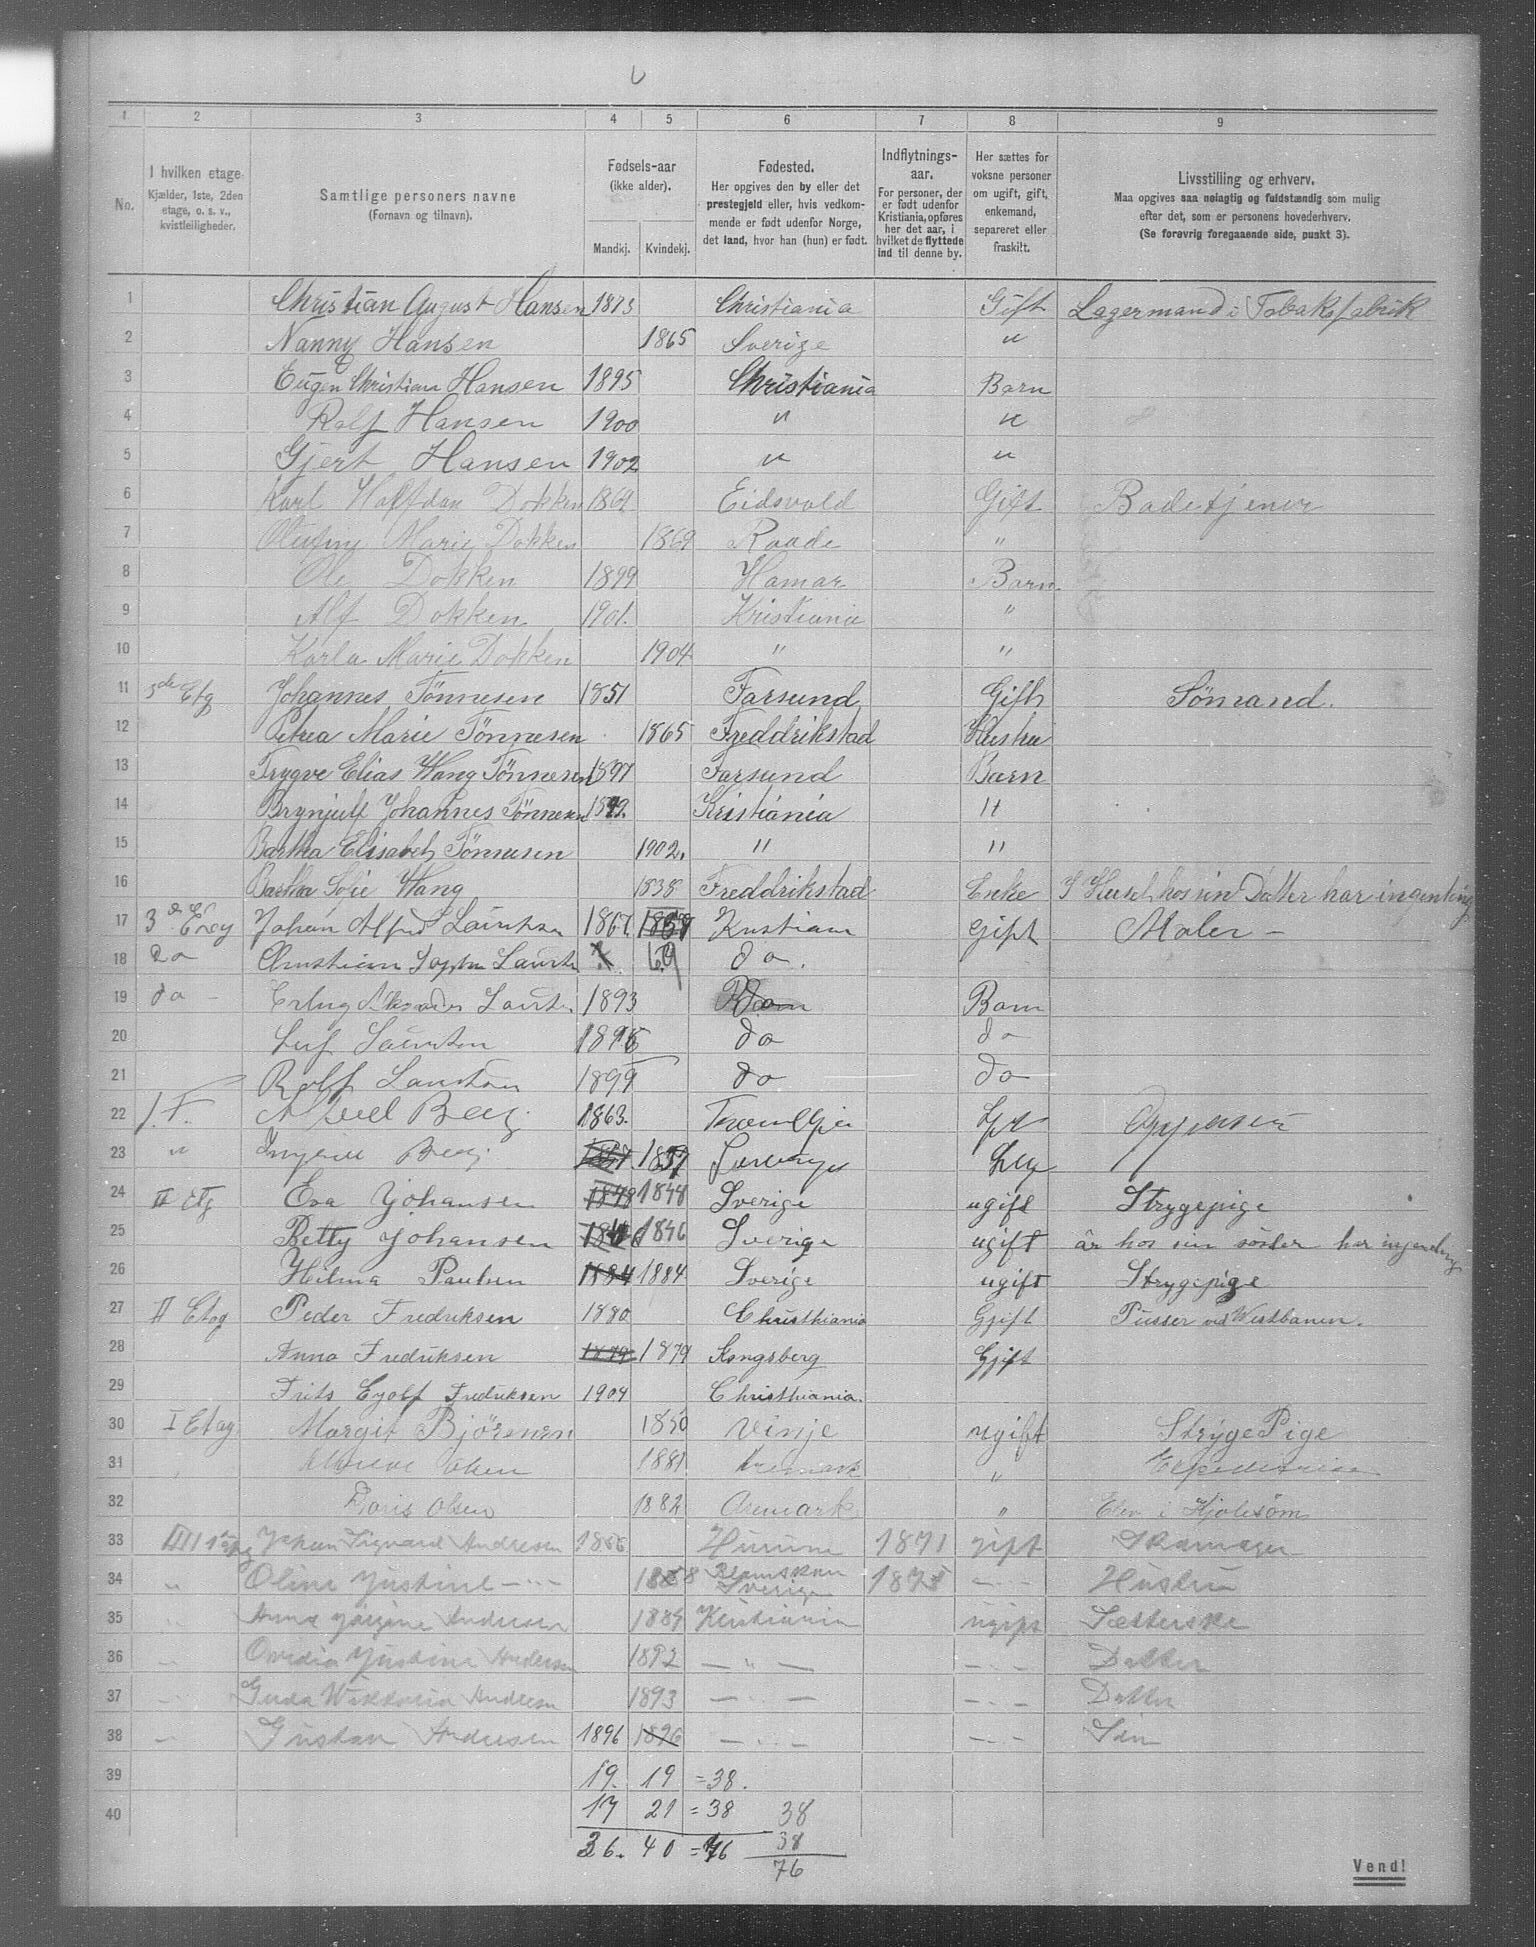 1 2 3 4 5 6 7 8 9
No.
I hvilken etage.
Kjælder, 1ste, 2den etage, o. s. v., kvistleiligheder.
Samtlige personers navne
(Fornavn og tilnavn).
Fødsels-aar
(ikke alder).
Mandkj. Kvindekj.
Fødested.
Her opgives den by eller det prestegjeld eller, hvis vedkommende er født udenfor Norge, det land, hvor han (hun) er født.
Indflytnings-aar.
For personer, der er født udenfor Kristiania, opføres her det aar, i hvilket de flyttede ind til denne by.
Her sættes for voksne personer om ugift, gift, enkemand, separeret eller fraskilt.
Livsstilling og erhverv.
Maa opgives saa nøiagtig og fuldstændig som mulig efter det, som er personens hovederhverv.
(Se forøvrig foregaaende side, punkt 3).
1 Christian August Hansen 1873 Christiania Gift Lagermand i Tobaksfabrik
2 Nanny Hansen 1865 Sverige "
3 Eugen Christian Hansen 1895 Christiania Barn
4 Rolf Hansen 1900 " "
5 Gjert Hansen 1902 " "
6 Karl Halfdan Dokken 1862 Eidsvold Gift Badetjener
7 Marie Dokken 1869 Raade "
8 Ole Dokken 1899 Hamar Barn
9 Alf Dokken 1901. Kristiania "
10 Karla Marie Dokken 1904 " "
11 Etg Johannes Tönnesen 1851 Farsund Gift Sömand.
12 Petrea Marie Tönnesen 1865 Freddrikstad Hustru
13 Trygve Elias Wang Tönnesen 1897 Farsund Barn
14 Brynjulf Johannes Tönnesen 1899. Kristiania "
15 Bartha Elisabeth Tönnesen 1902. " "
16 Bartha Sofie Wang 1838 Freddrikstad Enke I Huset hos sin Datter har ingenting
17 3 Johan Alfred 1867. Kristiania gift Maler -
18 Do 69 do.
19 do - 1893 Barn
20 1895 do do
21 Rolf 1899 do do
22 Berg 1863.
23 " Berg 1857
24 II Etg Eva Johansen 1848 1848 Sverige ugift Strygepige
25 Betty Johansen 1846 Sverige ugift är hos sin söster har ingenting
26 Hilma Paulsen 1884 1884 Sverige ugift Strygepige
27 II Etag Peder Fredriksen 1880 Christhiania Gjift Pusser ved Westbanen.
28 Anna Fredriksen 1879 1879 Kongsberg Gjift
29 Frits Eyolf Fredriksen 1904 Christhiania.
30 I Etag Margit Björensen 1850 Vinje ugift Stryge Pige
31 Olsen 1881 Aremark " Expeditrise
32 Doris Olsen 1882 Aremark " Elev i Kjolesöm
33 Johan Sigvard Andresen 1856 Hurum 1871 gift Skomager
34 " Oline Justine - " - 1858 Sverige 1878 - " - Hustru
35 " Anna Andresen 1884 Kristiania ugift
36 " Ovidia Justine Andresen 1892 - " - - " - Datter
37 " Andresen 1893 - " - - " - Datter
38 " Gustav Andresen 1896 1896 - " - - " - Sön
39 19. 19 = 38.
40 17 21 = 38 38
36. 40 = 76 38
76
Vend!